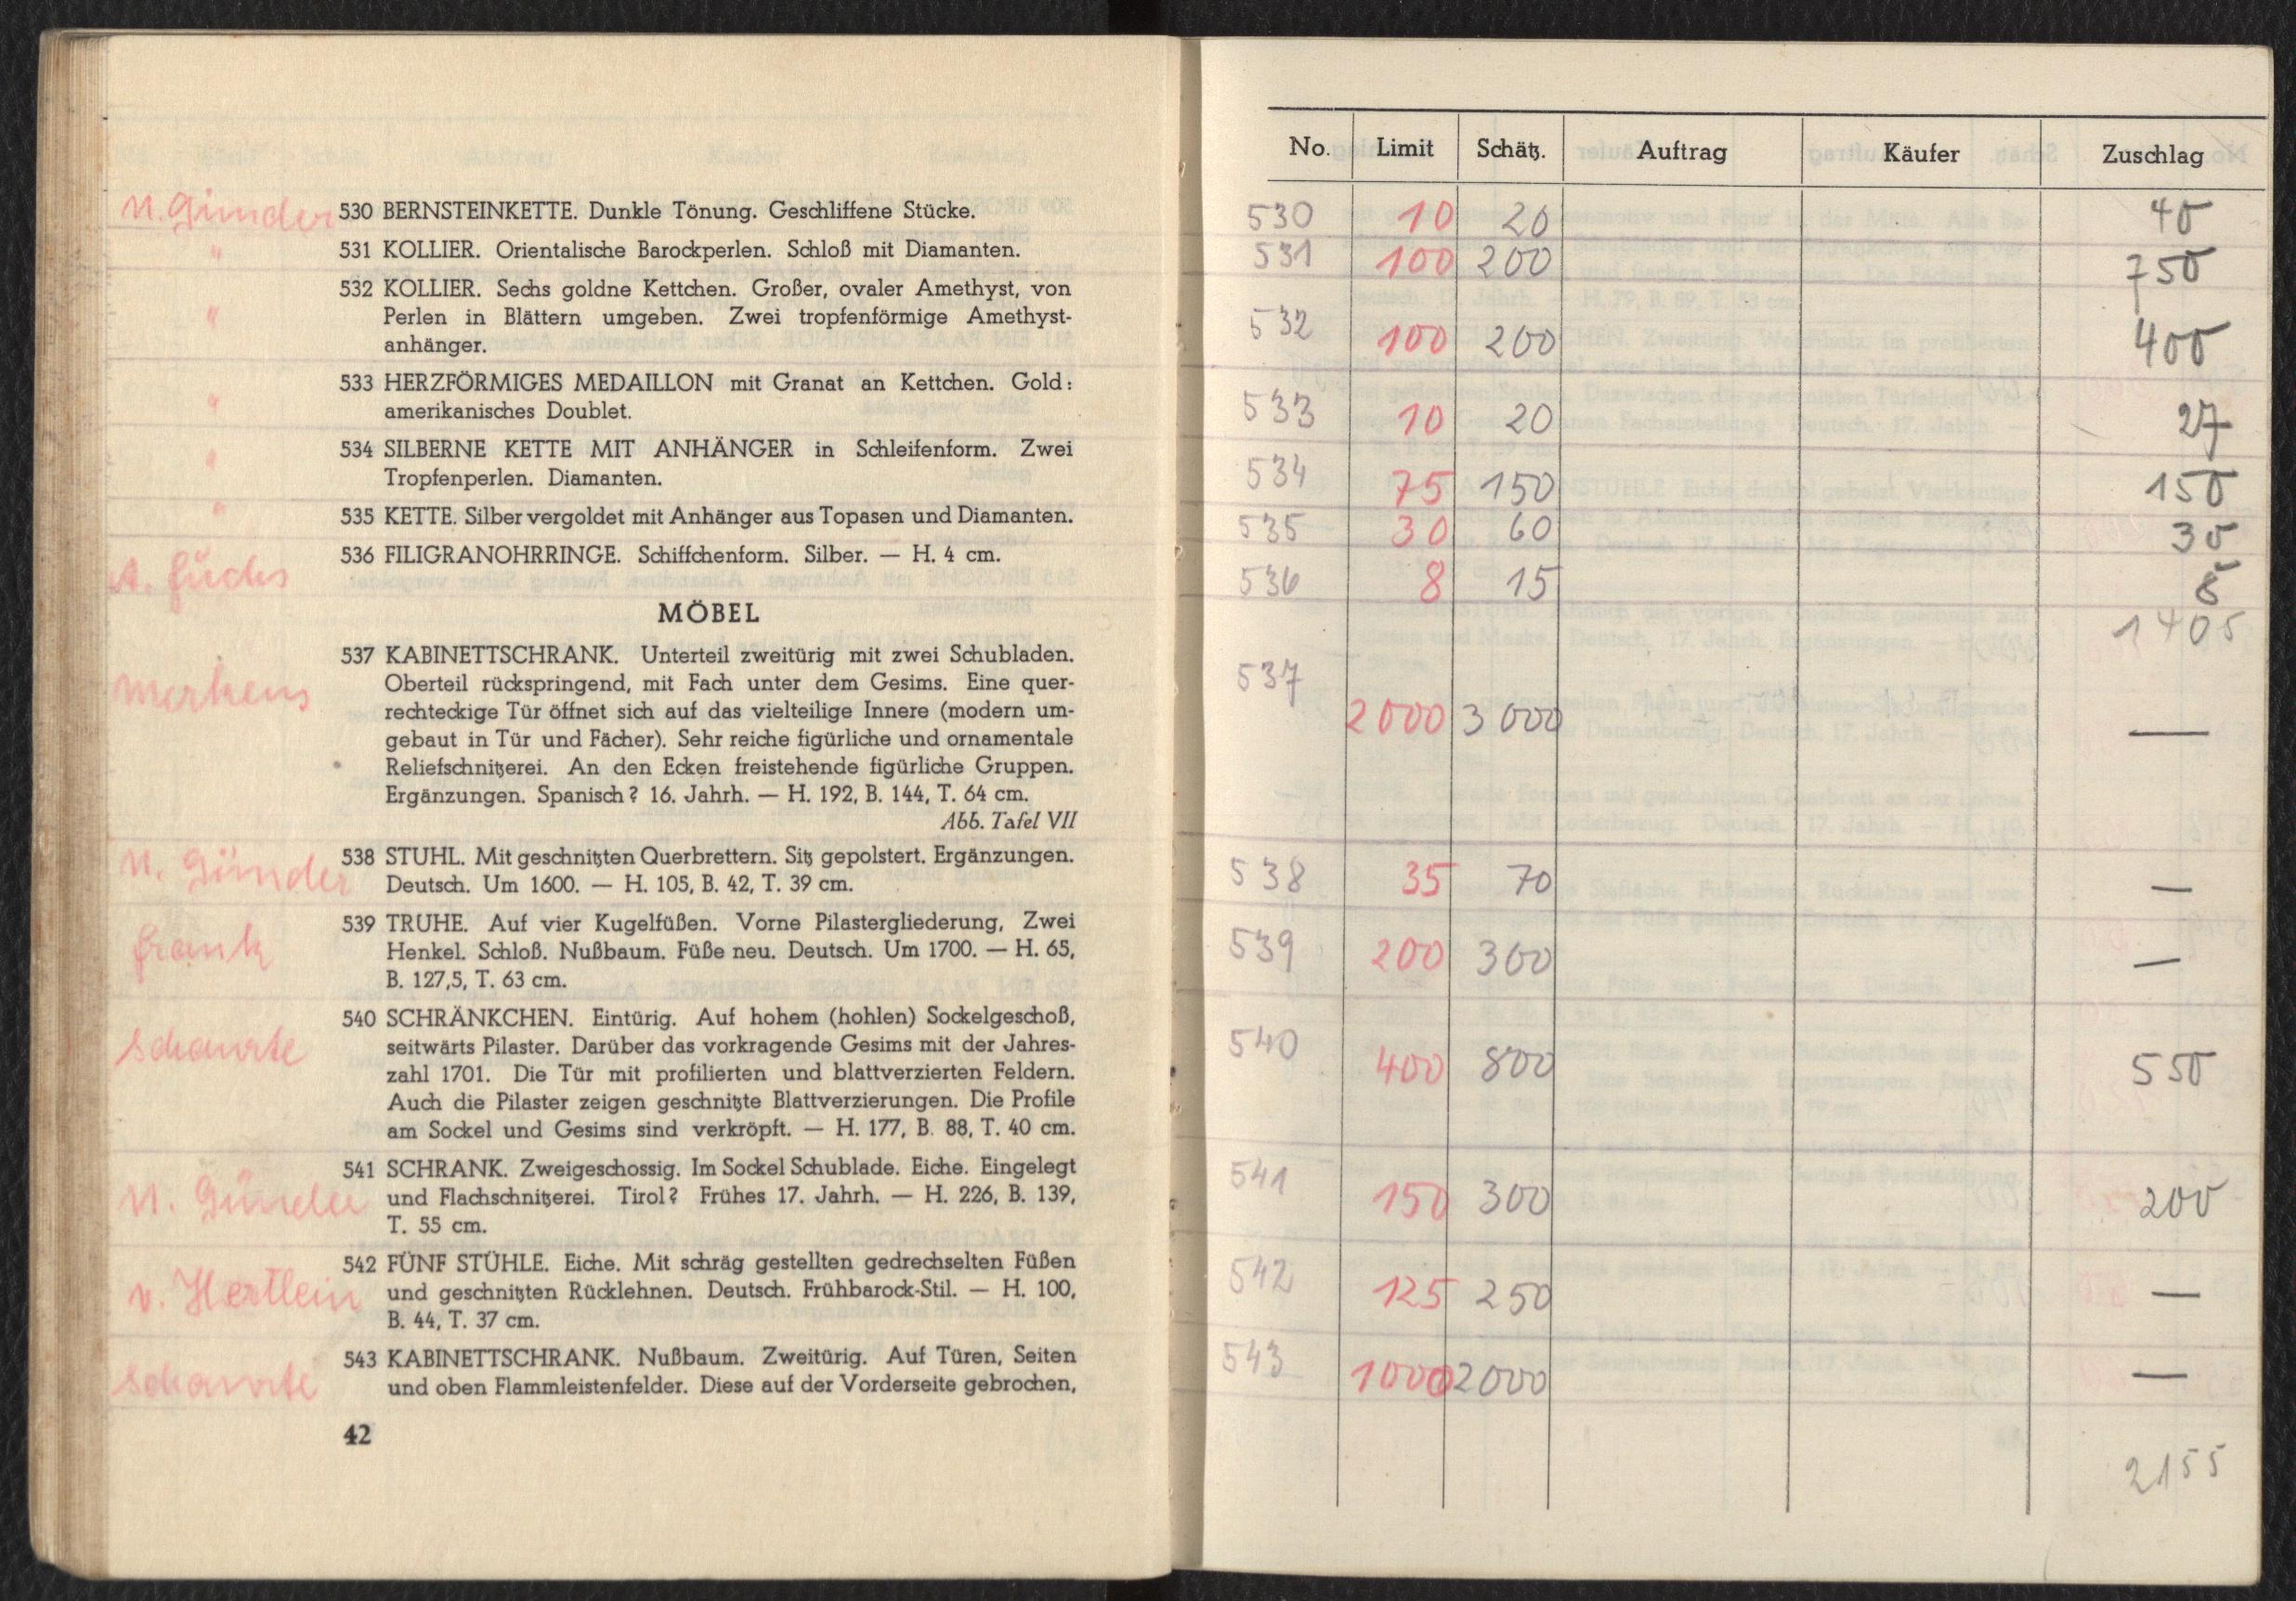 N. Günder 530 BERNSTEINKETTE. Dunkle Tönung. Geschliffene Stücke.
" 531 KOLLIER. Orientalische Barockperlen. Schloß mit Diamanten.
" 532 KOLLIER. Sechs goldne Kettchen. Großer, ovaler Amethyst, von
Perlen in Blättern umgeben. Zwei tropfenförmige Amethyst-
anhänger.
" 533 HERZFÖRMIGES MEDAILLON mit Granat an Kettchen. Gold:
amerikanisches Doublet.
" 534 SILBERNE KETTE MIT ANHÄNGER in Schleifenform. Zwei
Tropfenperlen. Diamanten.
" 535 KETTE. Silber vergoldet mit Anhänger aus Topasen und Diamanten.
A. Fuchs 536 FILIGRANOHRRINGE. Schiffchenform. Silber. — H. 4 cm.
MÖBEL
Merkens 537 KABINETTSCHRANK. Unterteil zweitürig mit zwei Schubladen.
Oberteil rückspringend, mit Fach unter dem Gesims. Eine quer-
rechteckige Tür öffnet sich auf das vielteilige Innere (modern um-
gebaut in Tür und Fächer). Sehr reiche figürliche und ornamentale
Reliefschnitzerei. An den Ecken freistehende figürliche Gruppen.
Ergänzungen. Spanisch? 16. Jahrh. — H. 192, B. 144, T. 64 cm.
Abb. Tafel VII
N. Günder 538 STUHL. Mit geschnitzten Querbrettern. Sitz gepolstert. Ergänzungen.
Deutsch. Um 1600. — H. 105, B. 42, T. 39 cm.
Frank 539 TRUHE. Auf vier Kugelfüßen. Vorne Pilastergliederung, Zwei
Henkel. Schloß. Nußbaum. Füße neu. Deutsch. Um 1700. — H. 65,
B. 127,5, T. 63 cm.
Scharrte 540 SCHRÄNKCHEN. Eintürig. Auf hohem (hohlen) Sockelgeschoß,
seitwärts Pilaster. Darüber das vorkragende Gesims mit der Jahres-
zahl 1701. Die Tür mit profilierten und blattverzierten Feldern.
Auch die Pilaster zeigen geschnitzte Blattverzierungen. Die Profile
am Sockel und Gesims sind verkröpft. — H. 177, B. 88, T. 40 cm.
N. Günder 541 SCHRANK. Zweigeschossig. Im Sockel Schublade. Eiche. Eingelegt
und Flachschnitzerei. Tirol? Frühes 17. Jahrh. — H. 226, B. 139,
T. 55 cm.
v. Hertlein 542 FÜNF STÜHLE. Eiche. Mit schräg gestellten gedrechselten Füßen
und geschnitzten Rücklehnen. Deutsch. Frühbarock-Stil. — H. 100,
B. 44, T. 37 cm.
Scharrte 543 KABINETTSCHRANK. Nußbaum. Zweitürig. Auf Türen, Seiten
und oben Flammleistenfelder. Diese auf der Vorderseite gebrochen,
42
No. Limit Schätz. Auftrag Käufer Zuschlag
530 10 20 40
531 100 200 750
532 100 200 400
533 10 20 27
534 75 150 150
535 30 60 30
536 8 15 8
1405
537 2000 3000 —
538 35 70 —
539 200 300 —
540 400 800 550
541 150 300 200
542 125 250 —
543 1000 2000 —
2155